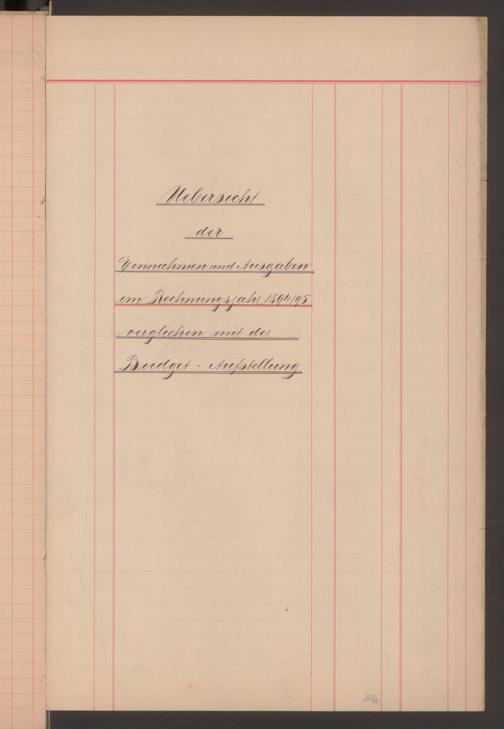 Uebersicht
der
Einnahmen und Ausgaben
im Rechnungsjahr 1894/95
verglichen mit der
Budget-Aufstellung
116